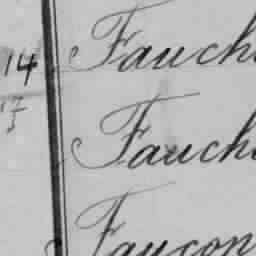 14 Fauch
17 Fauch
Faucon